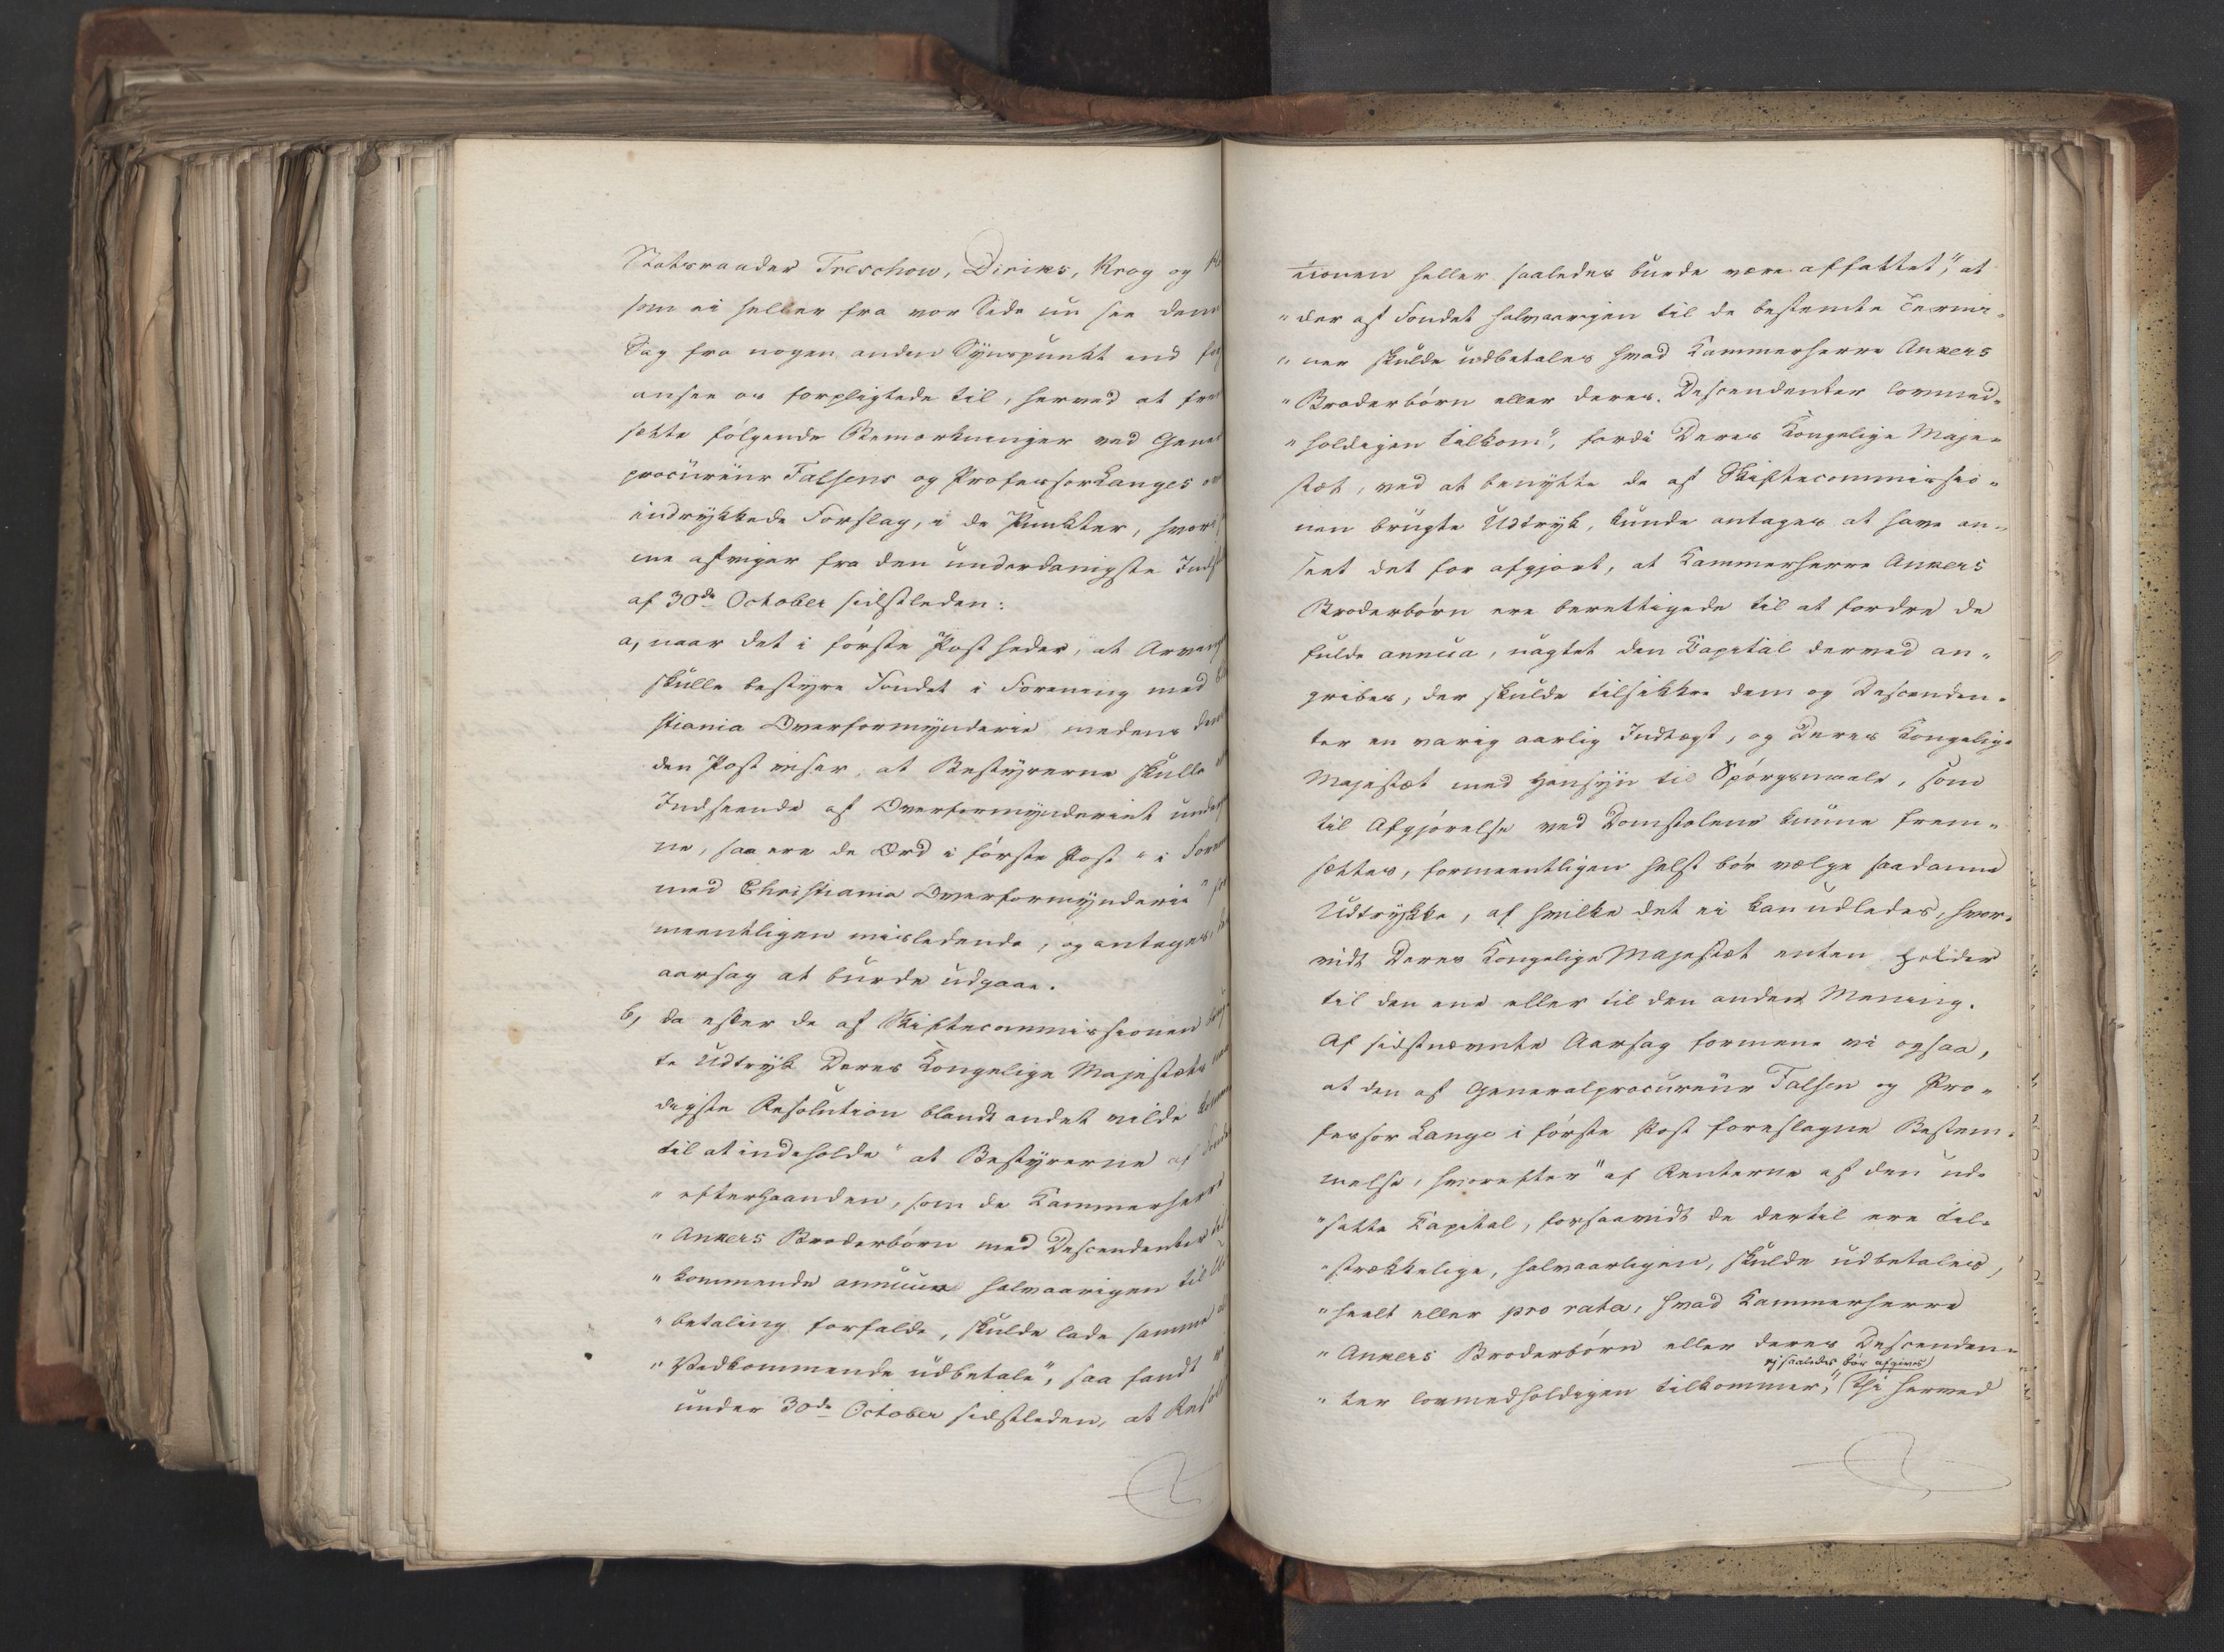 Statsraader Treschow, Diriks, Krog og
som ei heller fra vor Side nu see denne
Sag fra nogen anden Synspunkt end
ansee os forpligtede til, herved at frem
sætte følgende Bemærkninger ved Gene
procureur Falsens og Professor Langes
indrykkede Forslag, i de Punkter, hvori
me afviger fra den underdanigste Ind
af 30de October sidstleden:
a, naar det i første Post heder, at Arving
skulle bestyre Fondet i Forening med
stiania Overformynderie medens
den Post viser, at Bestyrerne skulle
Indseende af Overformynderiet under
ne, saa ere de Ord i første Post "i Foren
med Christiania Overformynderie"
meentligen misledende, og antages,
aarsag at burde udgaae.
b, da efter de af Skiftecommissionen brug
te Udtryk Deres Kongelige Majestæts naa
digste Resolution blandt andet vilde komme
til at indeholde "at Bestyrerne af Fonde
" efterhaanden, som de Kammerherre
" Ankers Broderbørn med Descendenter til
" kommende annua halvaarigen til Ud
" betaling forfalde, skulde lade samme
" Vedkommende udbetale", saa fandt vi
under 30de October sidstleden, at Resol
tionen heller saaledes burde være affattet, "at
" der af Fondet halvaarigen til de bestemte Termi-
" ner skulde udbetales hvad Kammerherre Ankers
" Broderbørn eller deres Descendenter lovmed-
" holdigen tilkom", fordi Deres Kongelige Maje-
stæt, ved at benytte de af Skiftecommissio-
nen brugte Udtryk, kunde antages at have an-
seet det for afgjort, at Kammerherre Ankers
Broderbørn ere berettigede til at fordre de
fulde annua, uagtet den Kapital derved an-
gribes, der skulde tilsikkre dem og Descenden-
ter en varig aarlig Indtægt, og Deres Kongelige
Majestæt med Hensyn til Spørgsmaale, som
til Afgjørelse ved Domstolene kunne frem-
sættes, formeentligen helst bør vælge saadanne
Udtrykke, af hvilke det ei kan udledes, hvor-
vidt Deres Kongelige Majestæt enten holder
til den ene eller til den anden Mening.
Af sidstnævnte Aarsag formene vi ogsaa,
at den af Generalprocureur Falsen og Pro-
fessor Lange i første Post foreslagne Bestem-
melse, hvorefter "af Renterne af den ud-
" satte Kapital, forsaavidt de dertil ere til-
" strækkelige, halvaarligen, skulde udbetales,
" heelt eller pro rata, hvad Kammerherre
" Ankers Broderbørn eller deres Descenden-
ej saaledes bør afgives
" ter lovmedholdigen tilkommer", thi herved